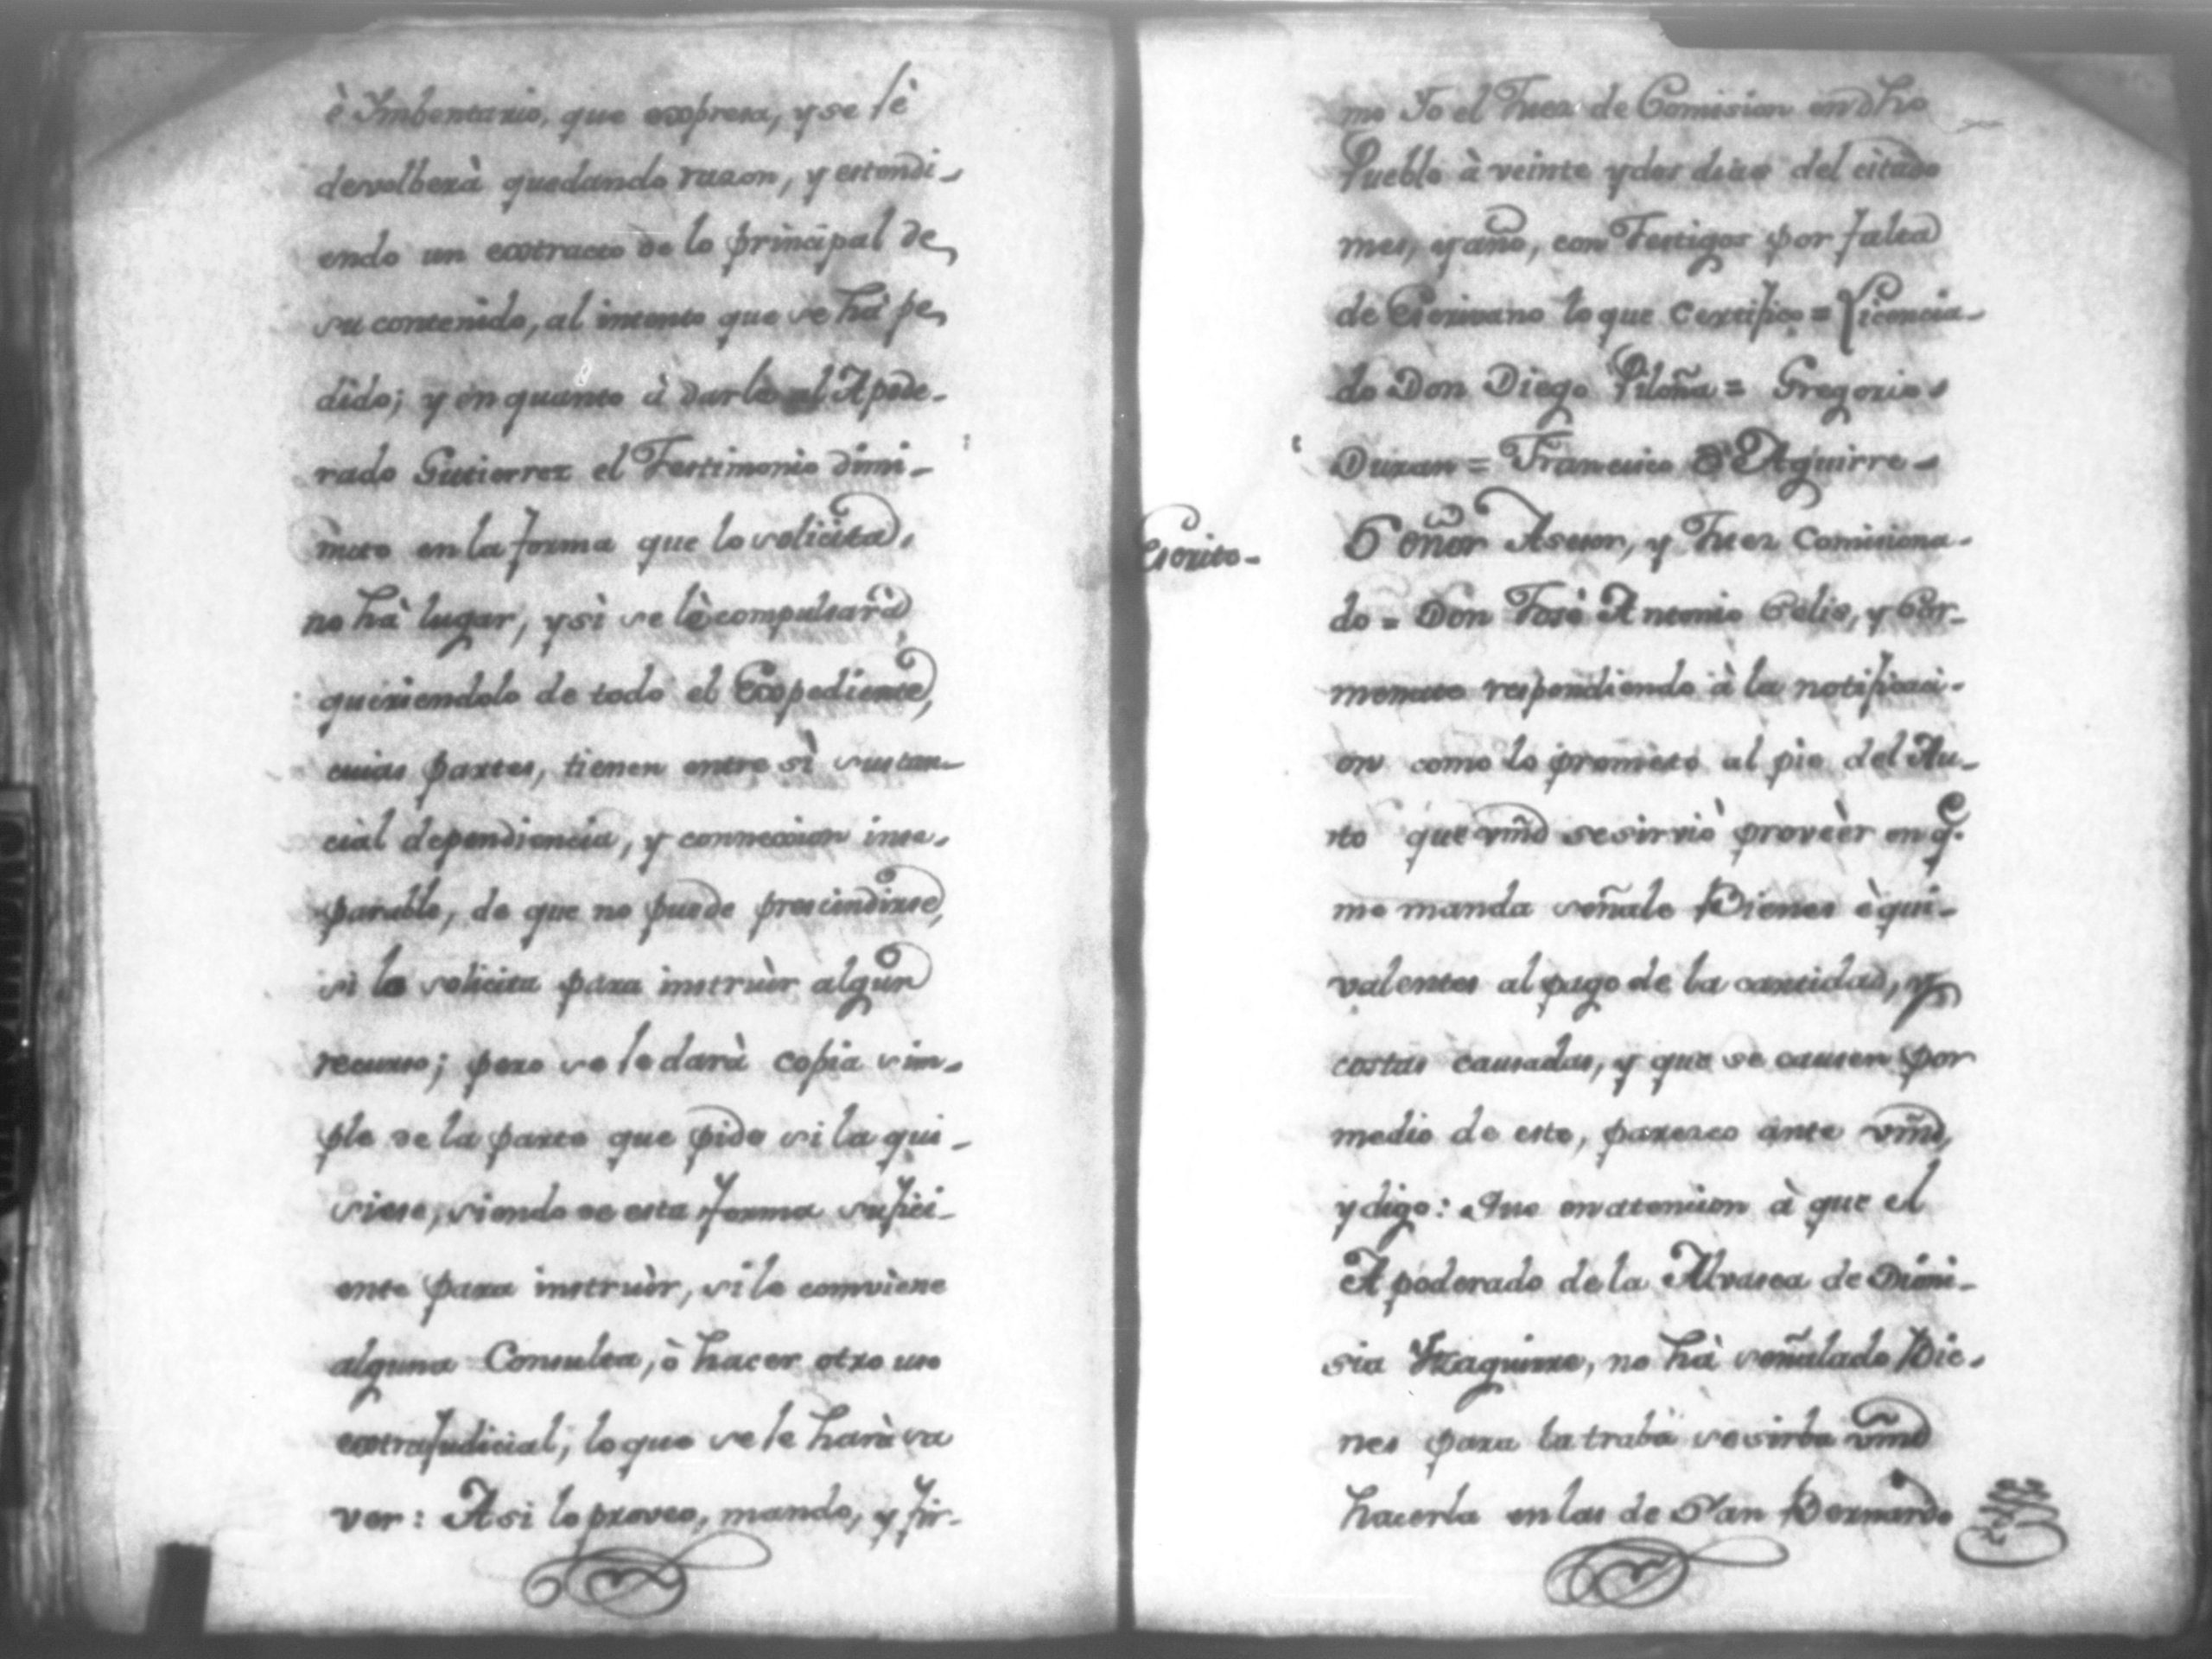 è Imbentario, que expresa, y se lè
devolberà quedando razon, y estendi-
endo un extracto de lo principal de
su contenido, al intento que se hà pe
dido; y en quanto à darle al Apode-
rado Gutierrez el Testimonio dimi-
nuto en la forma que lo solicita,
no hà lugar, y sì se lè compulsarà
queriendolo de todo el Expediente,
cuias partes, tienen entre sì sustan-
cial dependiencia, y connexion inse-
parable, de que no puede prescindirse,
si lo solicita para instruìr algun
recurso; pero se le darà copia sim-
ple de la parte que pide si la qui-
siese, siendo de esta forma sufici-
ente para instruìr, si le comviene
alguna Consulta, ò hacer otro uso
extrajudicial, lo que se le harà sa
ver: Asi lo proveo, mando, y fir-
mo Yo el Juez de Comision en dho
Pueblo à veinte y dos dias del citado
mes, y año, con Testigos por falta
de Escrivano lo que Certifico = Licencia-
do Don Diego Piloña = Gregorio
Duran = Francisco de Aguirre-
Escrito-
Señor Asesor, y Juez Comisiona-
do = Don Josè Antonio Celis, y Cor-
momuto respondiendo à la notificaci-
on como lo prometo al pie del Au-
to que vmd se sirviò proveèr en q.e
me manda señale Bienes èqui-
valentes al pago de la cantidad, y
costas causadas, y que se causen por
medio de este, paresco ante vmd,
y digo: Que en atension à que el
Apoderado de la Alvasea de Dioni-
sia Yzaguirre, no hà señalado Bie-
nes para la traba se sirba vmd
hacerla en las de San Bernardo